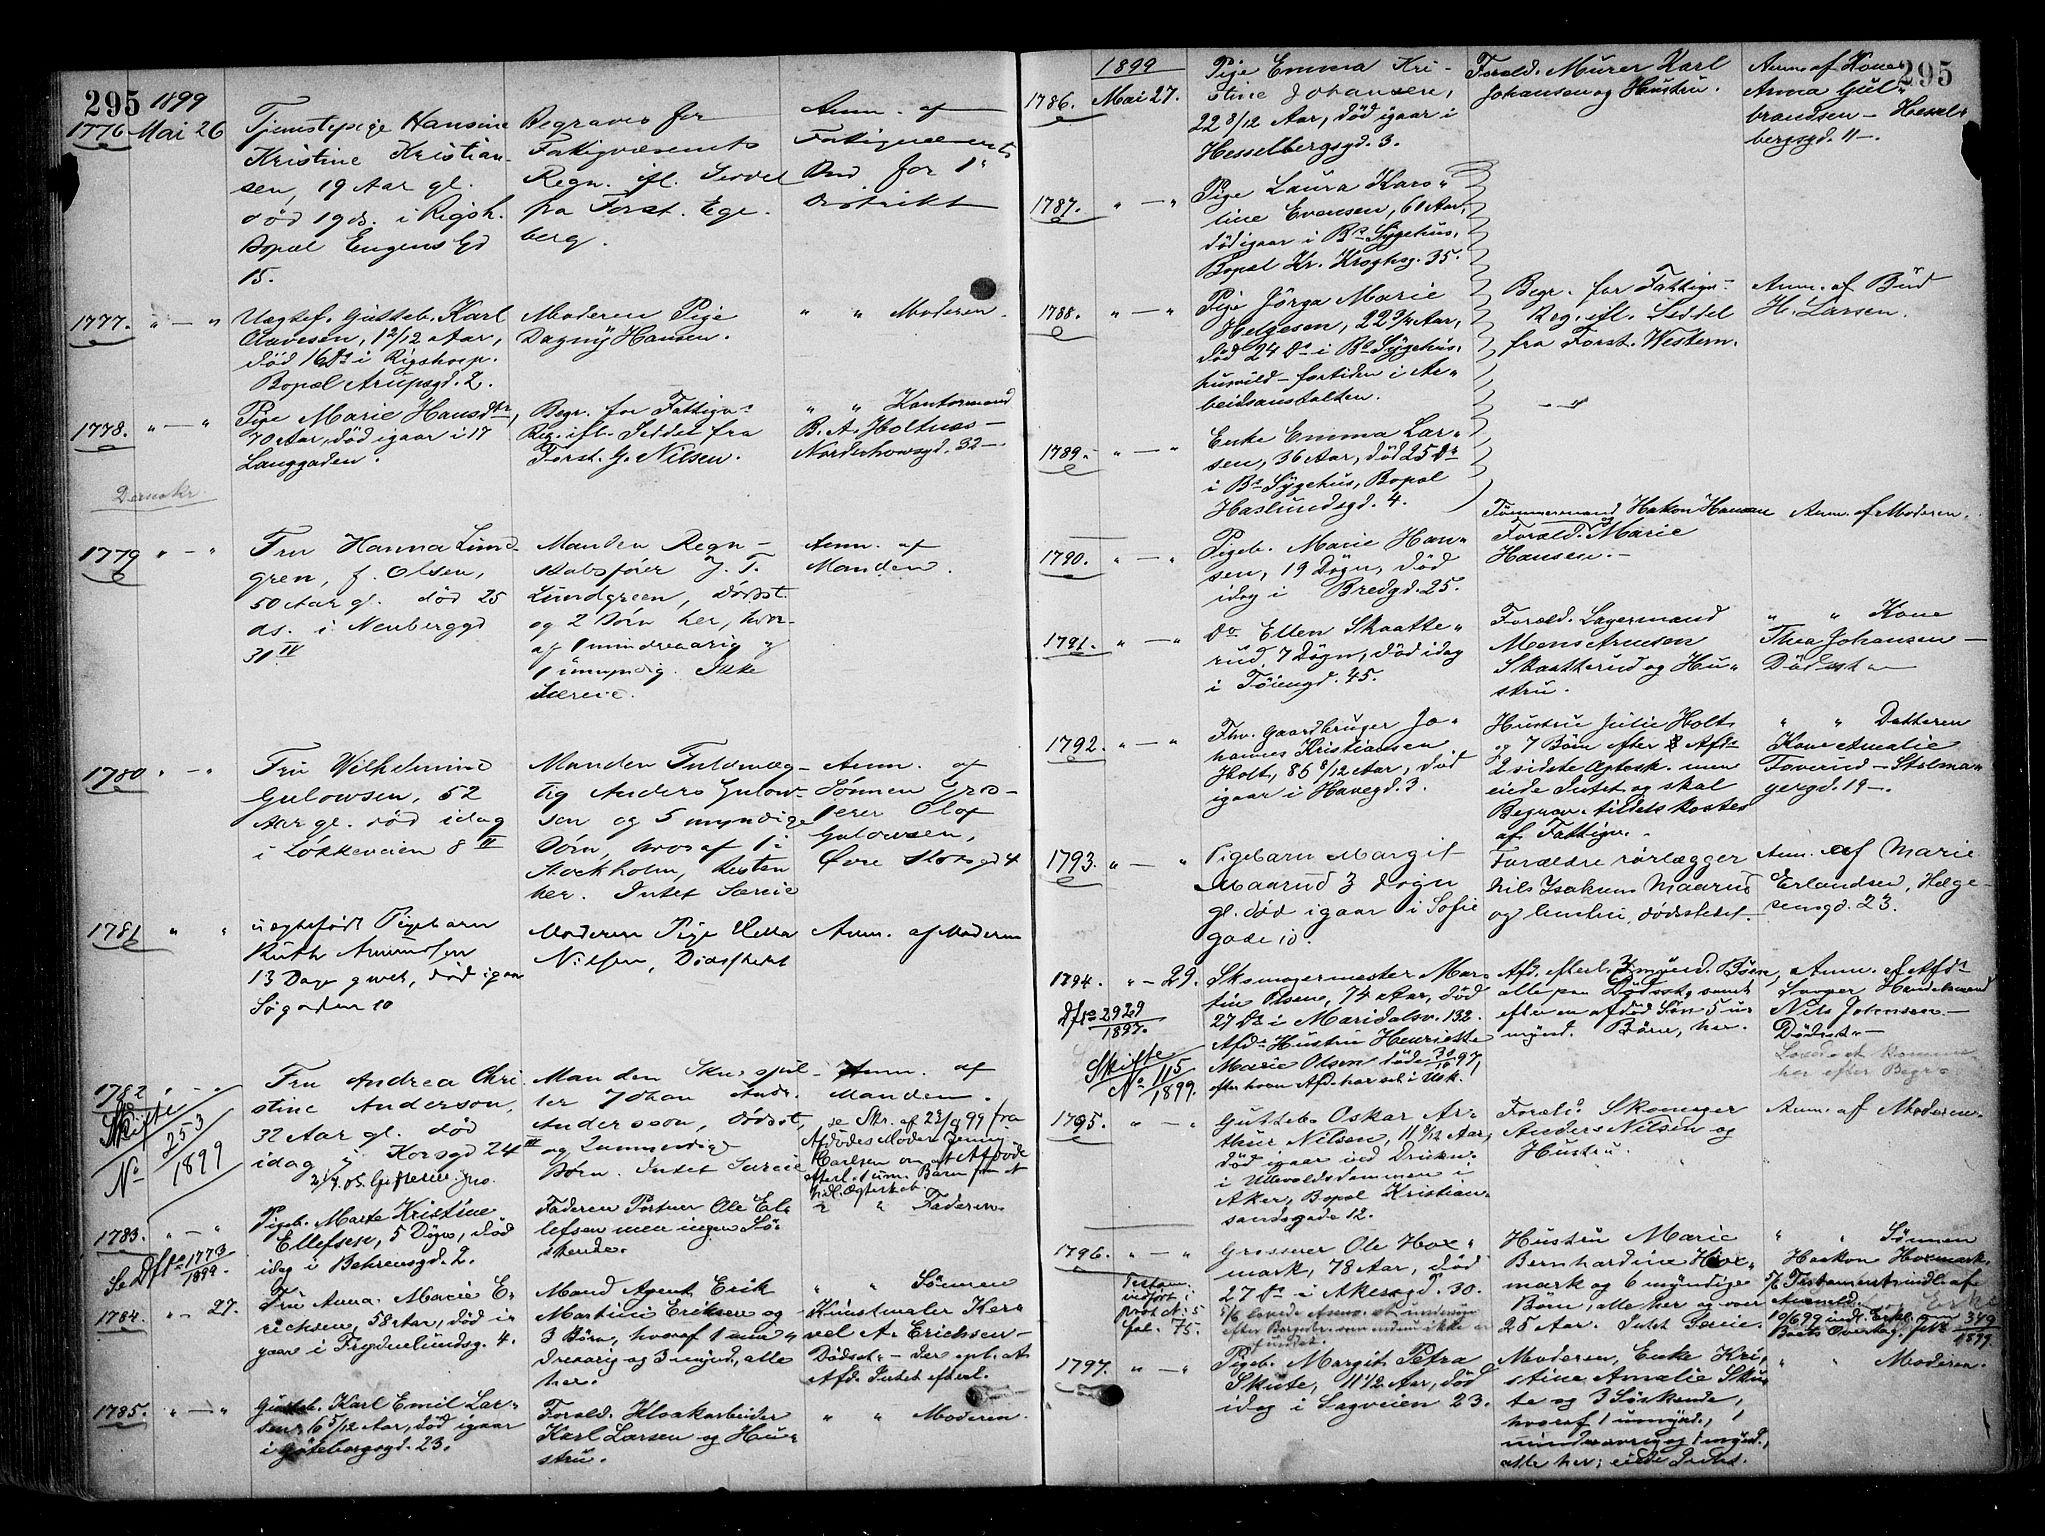 295 1899
1776 Mai 26
Tjenestepige Hansine
Kristine Kristian-
sen, 19 Aar gl.
død 19 ds. i Rigsh.
Bopæl Eugens Gd
15.
Begraves for
Fattigvæsenets
Regn. ifl. Seddel
fra Forst. Ege-
berg.
Anm. af
Fattigvæsenets
Bud for 1ste
Distrikt
1777. " — "
Uægtef. Gutteb. Karl
Olavesen, 1 2/12 Aar,
død 16 ds i Rigshosp.
Bopæl Arupsgd. 2.
Moderen Pige
Dagny Hansen.
" " Moderen.
1778. " — "
Pige Marie Hansdtr,
70 Aar, død igaar i 17
Langgaden.
Begr. for Fattigv.
Reg. ifl. Seddel fra
Forst. G. Nilsen.
" " Kontormand
B. A. Holtuss —
Norderhovsgd. 32 —
1779 " — "
Fru Hanna Lund-
gren, f. Olsen,
50 Aar gl. død 25
ds. i Neuberggd
31 IV
Manden Regn-
skabsfører J. T.
Lundgreen, Dødsst.
og 2 Børn her, hvor-
af 1 mindreaarig og
1 umyndig. Ikke
Særeie.
Anm. af
Manden.
1780 " — "
Fru Wilhelmine
Gulowsen, 52
Aar gl. død idag
i Løkkeveien 8 II
Manden Fuldmæg-
tig Anders Gulow-
sen og 5 myndige
Børn, hvoraf 1 i
Stockholm, Resten
her. Intet Særeie
Anm. af
Sønnen Gros-
serer Olaf
Gulowsen,
Øvre Slotsgd 4
1781 " "
uægtefødt Pigebarn
Ruth Amundsen
13 Dage gml, død igaar
Søgaden 10
Moderen Pige Helta
Nilsen, Dødsstedet
Anm. af Moderen
1782 " — "
Skifte
No 253/1899
Fru Andrea Chri-
stine Anderson,
32 Aar gl. død
idag i Korsgd 24 III
Manden Skuespil-
ler Johan And-
Andersson, Dødsst,
og 2 umyndige
Børn. Intet Særeie
Anm. af
Manden.
se Skr. af 23/9 99 fra
Afdødes Moder Jenny
Carlsen om at Afdøde
efterl. 1 um. Barn fra et
tidl. Ægteskab.
1783. " — "
Se Dfts 1773/1899.
Pigeb. Marte Kristine
Ellefsen, 5 Døgn, død
idag i Behrensgd. 2.
Faderen Portner Ole El-
lefsen men ingen Sø-
skende.
" " Faderen.
1784. " - 27.
Fru Anna Marie E-
richsen, 58 Aar, død i-
gaar i Frydenlundsg. 4.
Mand Agent Erik
Martini Eriksen og
3 Børn, hvoraf 1 min-
dreaarig og 3 mynd., alle
her.
" " Sønnen
Kunstmaler Ker-
vel A. Erichsen —
Dødsst. — der opl. at
Afd. Intet efterl.
1785. " — "
Gutteb. Karl Emil Lar-
sen, 6 5/12 Aar, død igaar
i Göteborgsgd. 23.
Foræld. Kloakarbeider
Karl Larsen og Hu-
stru.
" " Moderen.
1899
295
1786. Mai 27.
Pige Emma Kri-
stine Johansen,
22 8/12 Aar, død igaar i
Hesselbergsgd. 3.
Foræld. Murer Karl
Johansen og Hustru.
Anm. af Kone
Anna Gul-
brandsen — Hessel-
bergsgd. 11 —
1787. " — "
Pige Laura Karo-
line Evensen, 60 Aar,
død igaar i Bs Sygehus,
Bopæl Kr. Kroghsg. 35.
1788. " — "
Pige Jørga Marie
Helgesen, 22 3/4 Aar,
død 24 ds i Bs Sygehus,
husvild — fortiden i Ar-
beidsanstalten.
Begr. for Fattigv-
Reg. ifl. Seddel
fra Forst. Western.
Anm. af Bud
H. Larsen.
1789. " — "
Enke Emma Lar-
sen, 36 Aar, død 25 ds
i Bs Sygehus, Bopæl
Haslundsgd. 4.
1790. " — "
Pigeb. Marie Han-
sen, 19 Døgn, død
idag i Bredgd. 25.
Tømmermand Hakon Hansen
Foræld. Marie
Hansen. —
Anm. af Moderen.
1791. " — "
Do Ellen Skaatte-
rud, 7 Døgn, død idag
i Tøiengd. 45.
Foræld. Lagermand
Mons Arneson
Skaatterud og Hu-
stru.
" " Kone
Thea Johansen —
Dødsst —
1792. " — "
Fhv. Gaardbruger Jo-
hannes Kristiansen
Holt, 86 8/12 Aar, død
igaar i Havegd. 3.
Hustru Julie Holt
og 7 Børn efter Afds
2 sidste Ægtesk. men
eide Intet og skal
Begrav. tildels kostes
af Fattigv.
" " Datteren
Kone Amalie
Toverud — Stolma-
gergd. 19 —
1793. " — "
Pigebarn Margit
Maarud 3 Døgn
gl. død igaar i Sofie
gade 10.
Forældre rørlægger
Nils Isaksens Maarud
og hustru, dødsstedet —
Anm. af Marie
Erlandsen, Helge-
sensgd. 23.
1794. " - 29.
Dfts 2929/1897.
Skifte
No 115/1899.
Skomagermester Mar-
tin Olsen, 74 Aar, død
27 ds i Maridalsv. 132.
Afds Hustru Henriette
Marie Olsen døde 30/10 97,
efter hvem Afd. har sit i Usk.
Afd. efterl. 3 mynd. Børn,
alle paa Dødsst, samt
efter en afdød Søn 5 u-
mynd. Børn, her.
Anm. af Afds
Svoger Handelsmand
Nils Johnsen —
Dødsst —
1795. " — "
Gutteb. Oskar Ar-
thur Nilsen, 11 9/12 Aar,
død igaar ved Drukn.
i Ullevoldsdammen i
Aker, Bopæl Kristian-
sandsgade 12.
Foræld. Skomager
Anders Nilsen og
Hustru.
Anm. af Moderen.
1796. " — "
Testam.
indført i
prot. N. 5
fol. 75.
Grosserer Ole Hox-
mark, 78 Aar, død
27 ds i Akersgd. 30.
Hustru Marie
Bernhardine Hox-
mark og 6 myndige
Børn, alle her og over
25 Aar. Intet Særeie.
" " Sønnen
Haakon Hoxmark.
10/6 99 indl. Erkl. om
Boets Overtag. 349/1899.
1797. " — "
Pigeb. Margit Petra
Skute, 11 1/2 Aar, død
idag i Sagveien 23.
Moderen, Enke Kri-
stine Amalie Sku-
te og 3 Søskende,
hvoraf 1 umynd., 1
mindreaarig og 1 mynd.,
alle her; eide Intet.
" " Moderen.